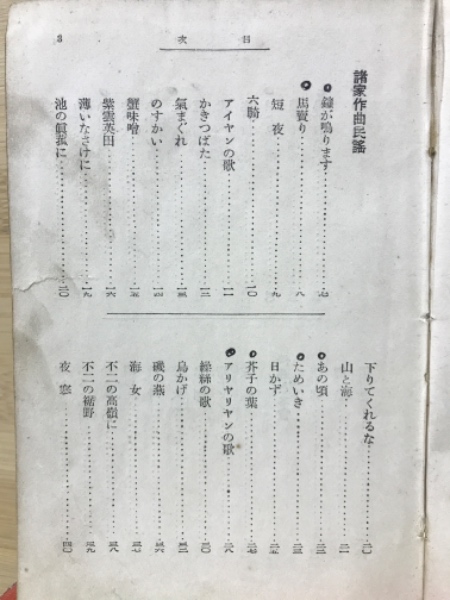 目次 3
諸家作曲民謠
鐘が鳴ります………七
馬賣り………八
短夜………九
六騎………一〇
アイヤンの歌………一一
かきつばた………一二
氣まぐれ………一三
のすかい………一四
蟹味噌………一五
紫雲英田………一六
薄いなさけに………一九
池の眞菰に………二〇
下りてくれるな………二〇
山と海………二一
あの頃………二二
ためいき………二三
日かず………二五
芥子の葉………二七
アリヤリヤンの歌………二八
繰絲の歌………三〇
鳥かげ………三二
磯の燕………三六
海女………三七
不二の高嶺に………三八
不二の裾野………三九
夜窓………四〇